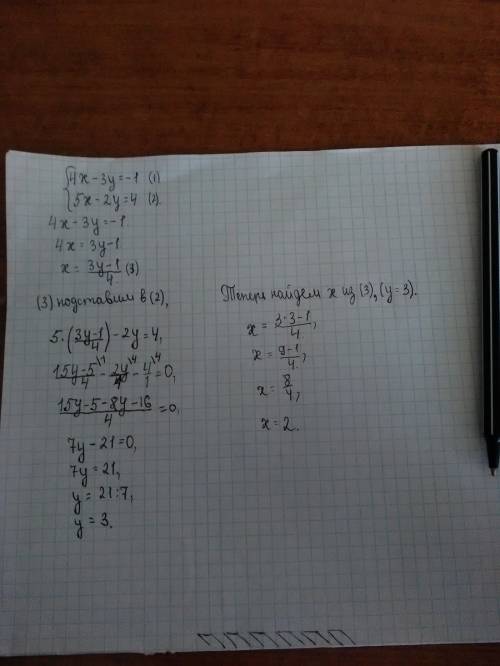 {4x-3y=-1 (1)
5x-2y=4 (2).
4x-3y=-1.
4x=3y-1
x=\frac{3y-1}{4} (3)
(3) подставим в (2),
5·(\frac{3y-1}{4})-2y=4,
\frac{15y-5}{4}^{\1}-\frac{2y}{1}^{\4}-\frac{4}{1}^{\4}=0,
\frac{15y-5-8y-16}{4}=0,
7y-21=0,
7y=21,
y=21:7,
y=3.
Теперь найдем x из (3), (y=3).
x=\frac{3·3-1}{4},
x=\frac{9-1}{4},
x=\frac{8}{4},
x=2.